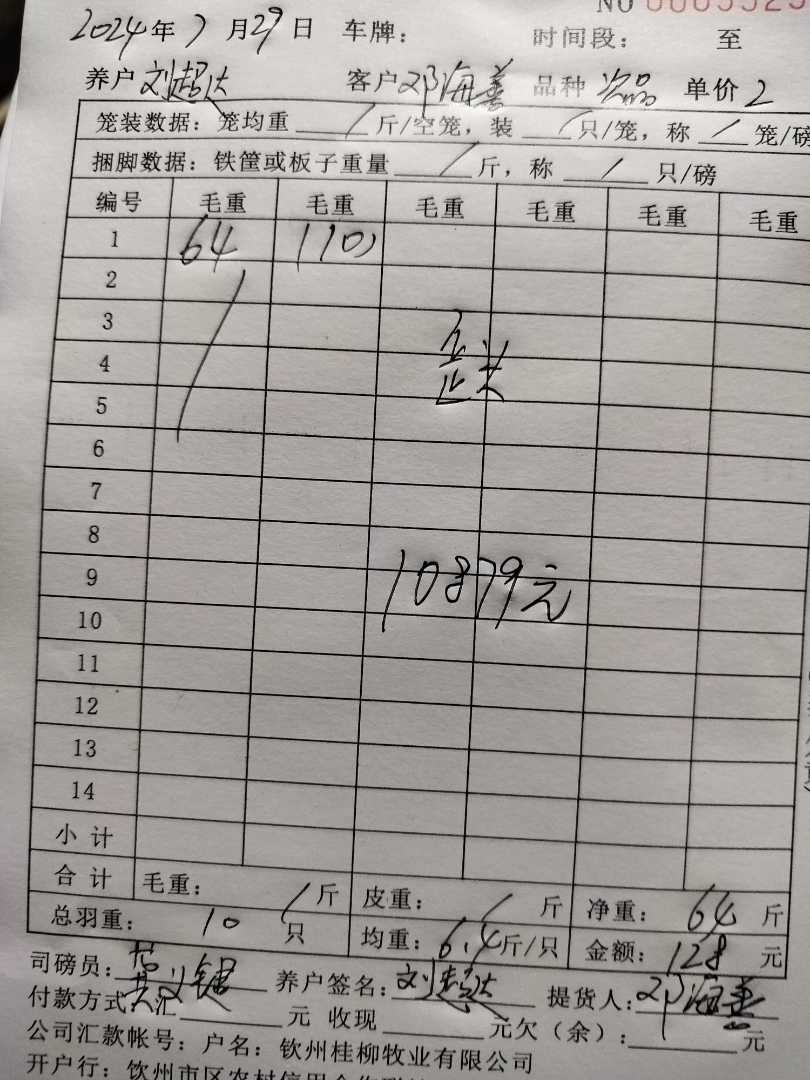 NO 0005525
2024年7月29日 车牌: 时间段: 至
养户 刘超达 客户 邓海善 品种 次品 单价 2
笼装数据: 笼均重 / 斤/空笼, 装 / 只/笼, 称 / 笼/磅
捆脚数据: 铁筐或板子重量 / 斤, 称 / 只/磅
编号 毛重 毛重 毛重 毛重 毛重 毛重
1 64 110)
2
3
4
5
6
7
8
9
10879元
10
11
12
13
14
小计
合计 毛重: / 斤 皮重: / 斤 净重: 64 斤
总羽重: 10 只 均重: 6.4 斤/只 金额: 128 元
司磅员: 养户签名: 刘超达 提货人: 邓海善
付款方式: 汇 元 收现 元欠(余): 元
公司汇款帐号: 户名: 钦州桂柳牧业有限公司
开户行: 钦州市区农村信用合作联社